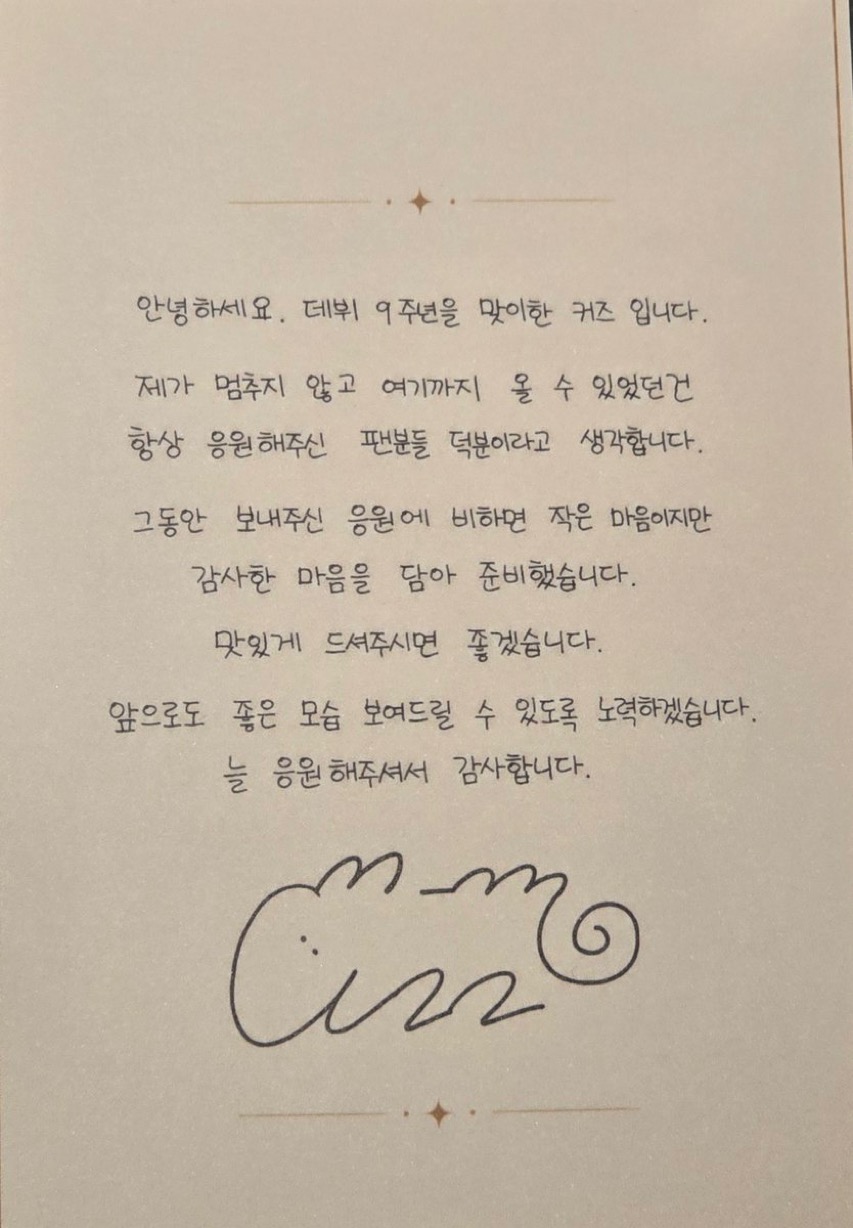 안녕하세요. 데뷔 9주년을 맞이한 커즈 입니다.
제가 멈추지 않고 여기까지 올 수 있었던건
항상 응원해주신 팬분들 덕분이라고 생각합니다.
그동안 보내주신 응원에 비하면 작은 마음이지만
감사한 마음을 담아 준비했습니다.
맛있게 드셔주시면 좋겠습니다.
앞으로도 좋은 모습 보여드릴 수 있도록 노력하겠습니다.
늘 응원해주셔서 감사합니다.